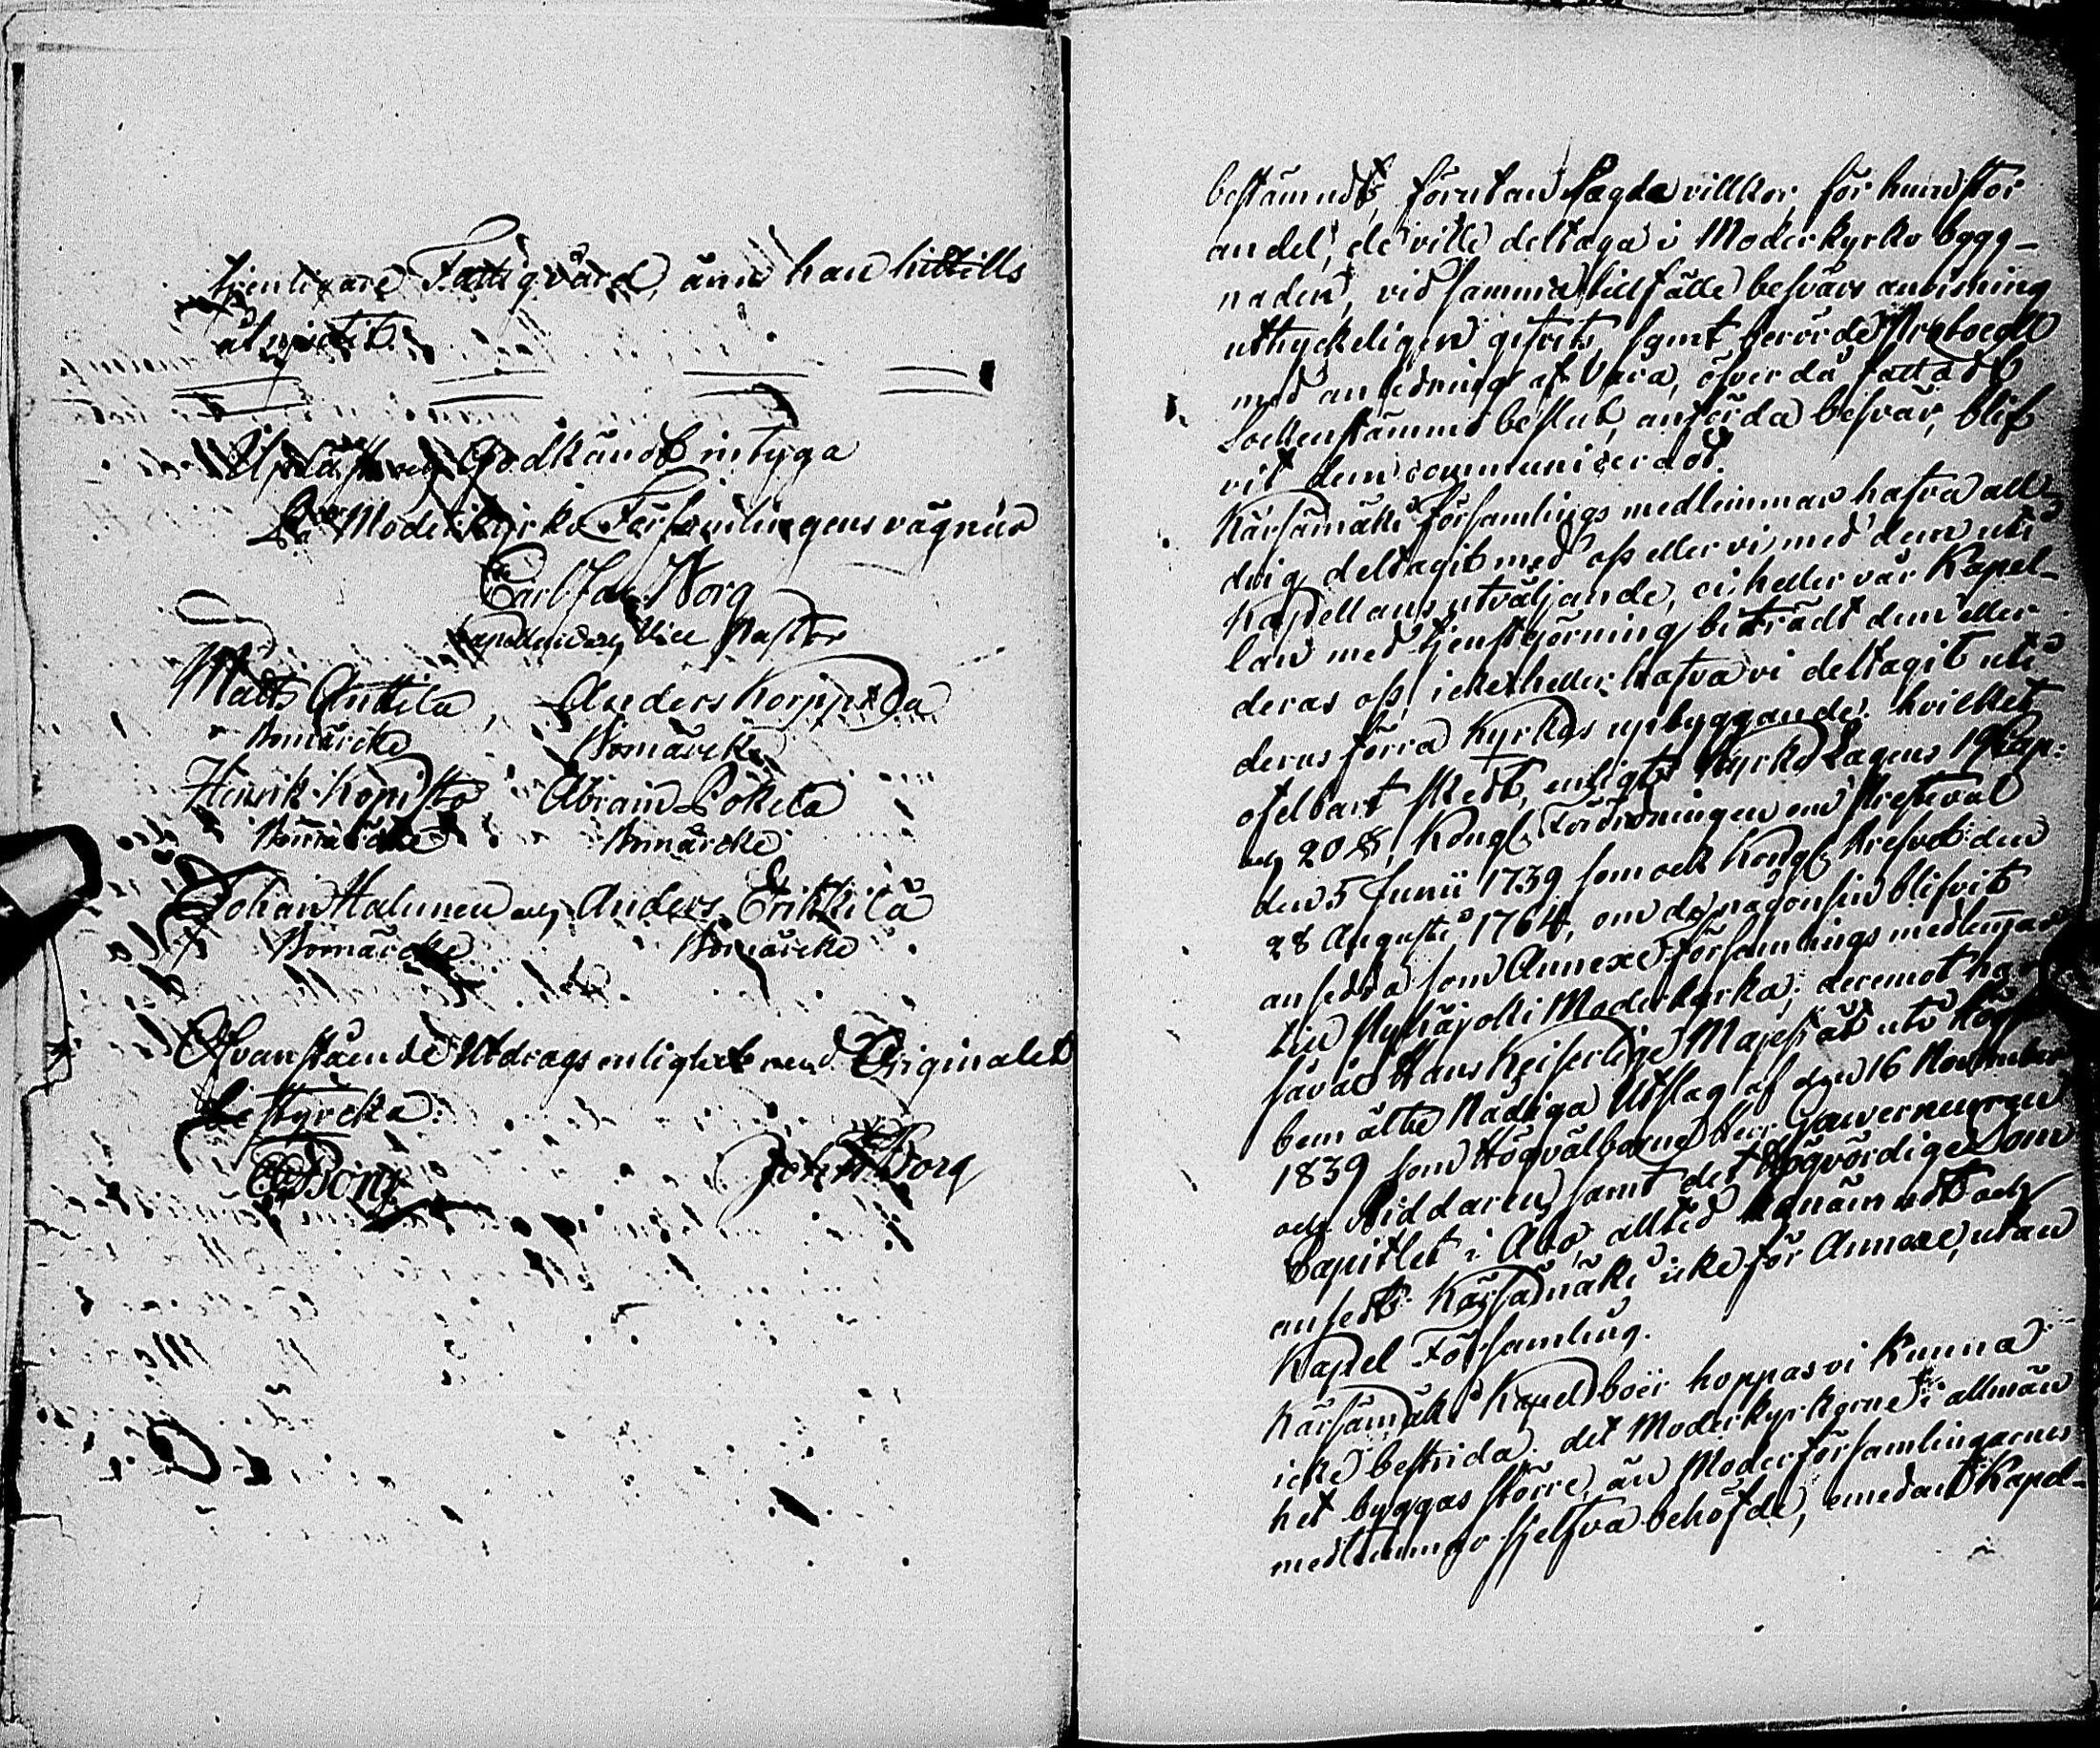 tjenligare Fattigvård, änn han hittills
åtnjutit.
Upläst och Godkändt intyga
På Moderkyrko Församlingens vägnar
Carl Jac. Borg
Kapellan och Vice Pastor
Matts Anttila, Anders Korpisda
Bomärcke Bomärcke
Henrik Kopisto Abram Pokela
Bomärcke Bomärcke
Johan Halunen och Anders Erikkilä
Bomärcke Bomärcke
Ofvanstående Utdrags enlighet med Originalet
bestyrcka:
Johan Borg
bestämndt, förutan sagda villkor, för huru stor
andel, de ville deltaga i Moderkyrko bygg-
naden, vid samma tillfälle besvärs anvisning
uttryckeligen gifvits, samt berörde Protocoll
med anledning af Våra, öfver då fattadt
Sockenstämmo beslut, anförda besvär, blif-
vit dem communiceradt.
Kärsämäki Församlings medlemmar hafva all-
drig deltagit med oss eller vi med dem uti
Kapellans utväljande, ei heller vår Kapel-
lan med tjenstgörning biträdt dem eller
deras oss, icke heller hafva vi deltagit uti
deras förra Kyrkas upbyggande; hvilket
ofelbart skedt, enligt Kyrko Lagens 19 Cap:
och 20 §, Kongl. Förordningen om Prestval
den 5 Junii 1739 som ock Kongl. Brefvet den
28 Augusti 1764, om de någonsin blifvit
ansedda som Annexe Församlings medlemmar
till Pyhäjoki Moderkyrka; deremot har
såväl Hans Kejserlige Majestät uti Högst-
bemälte Nådiga Utslag af den 16 November
1839 som Högvälborne Herr Gouverneuren
och Riddaren, samt det Högvördige Dom
Capitlet i Åbo, alltid benämndt och
ansedt Kärsämäki icke för Annexe, utan
Kapel Församling.
Kärsämäki Kapelboer hoppas vi kunna
icke bestrida, det Moderkyrkorne i allmän-
het byggas större, än Moderförsamlingarnes
medlemmar sjelfva behöfde, emedan Kapel-